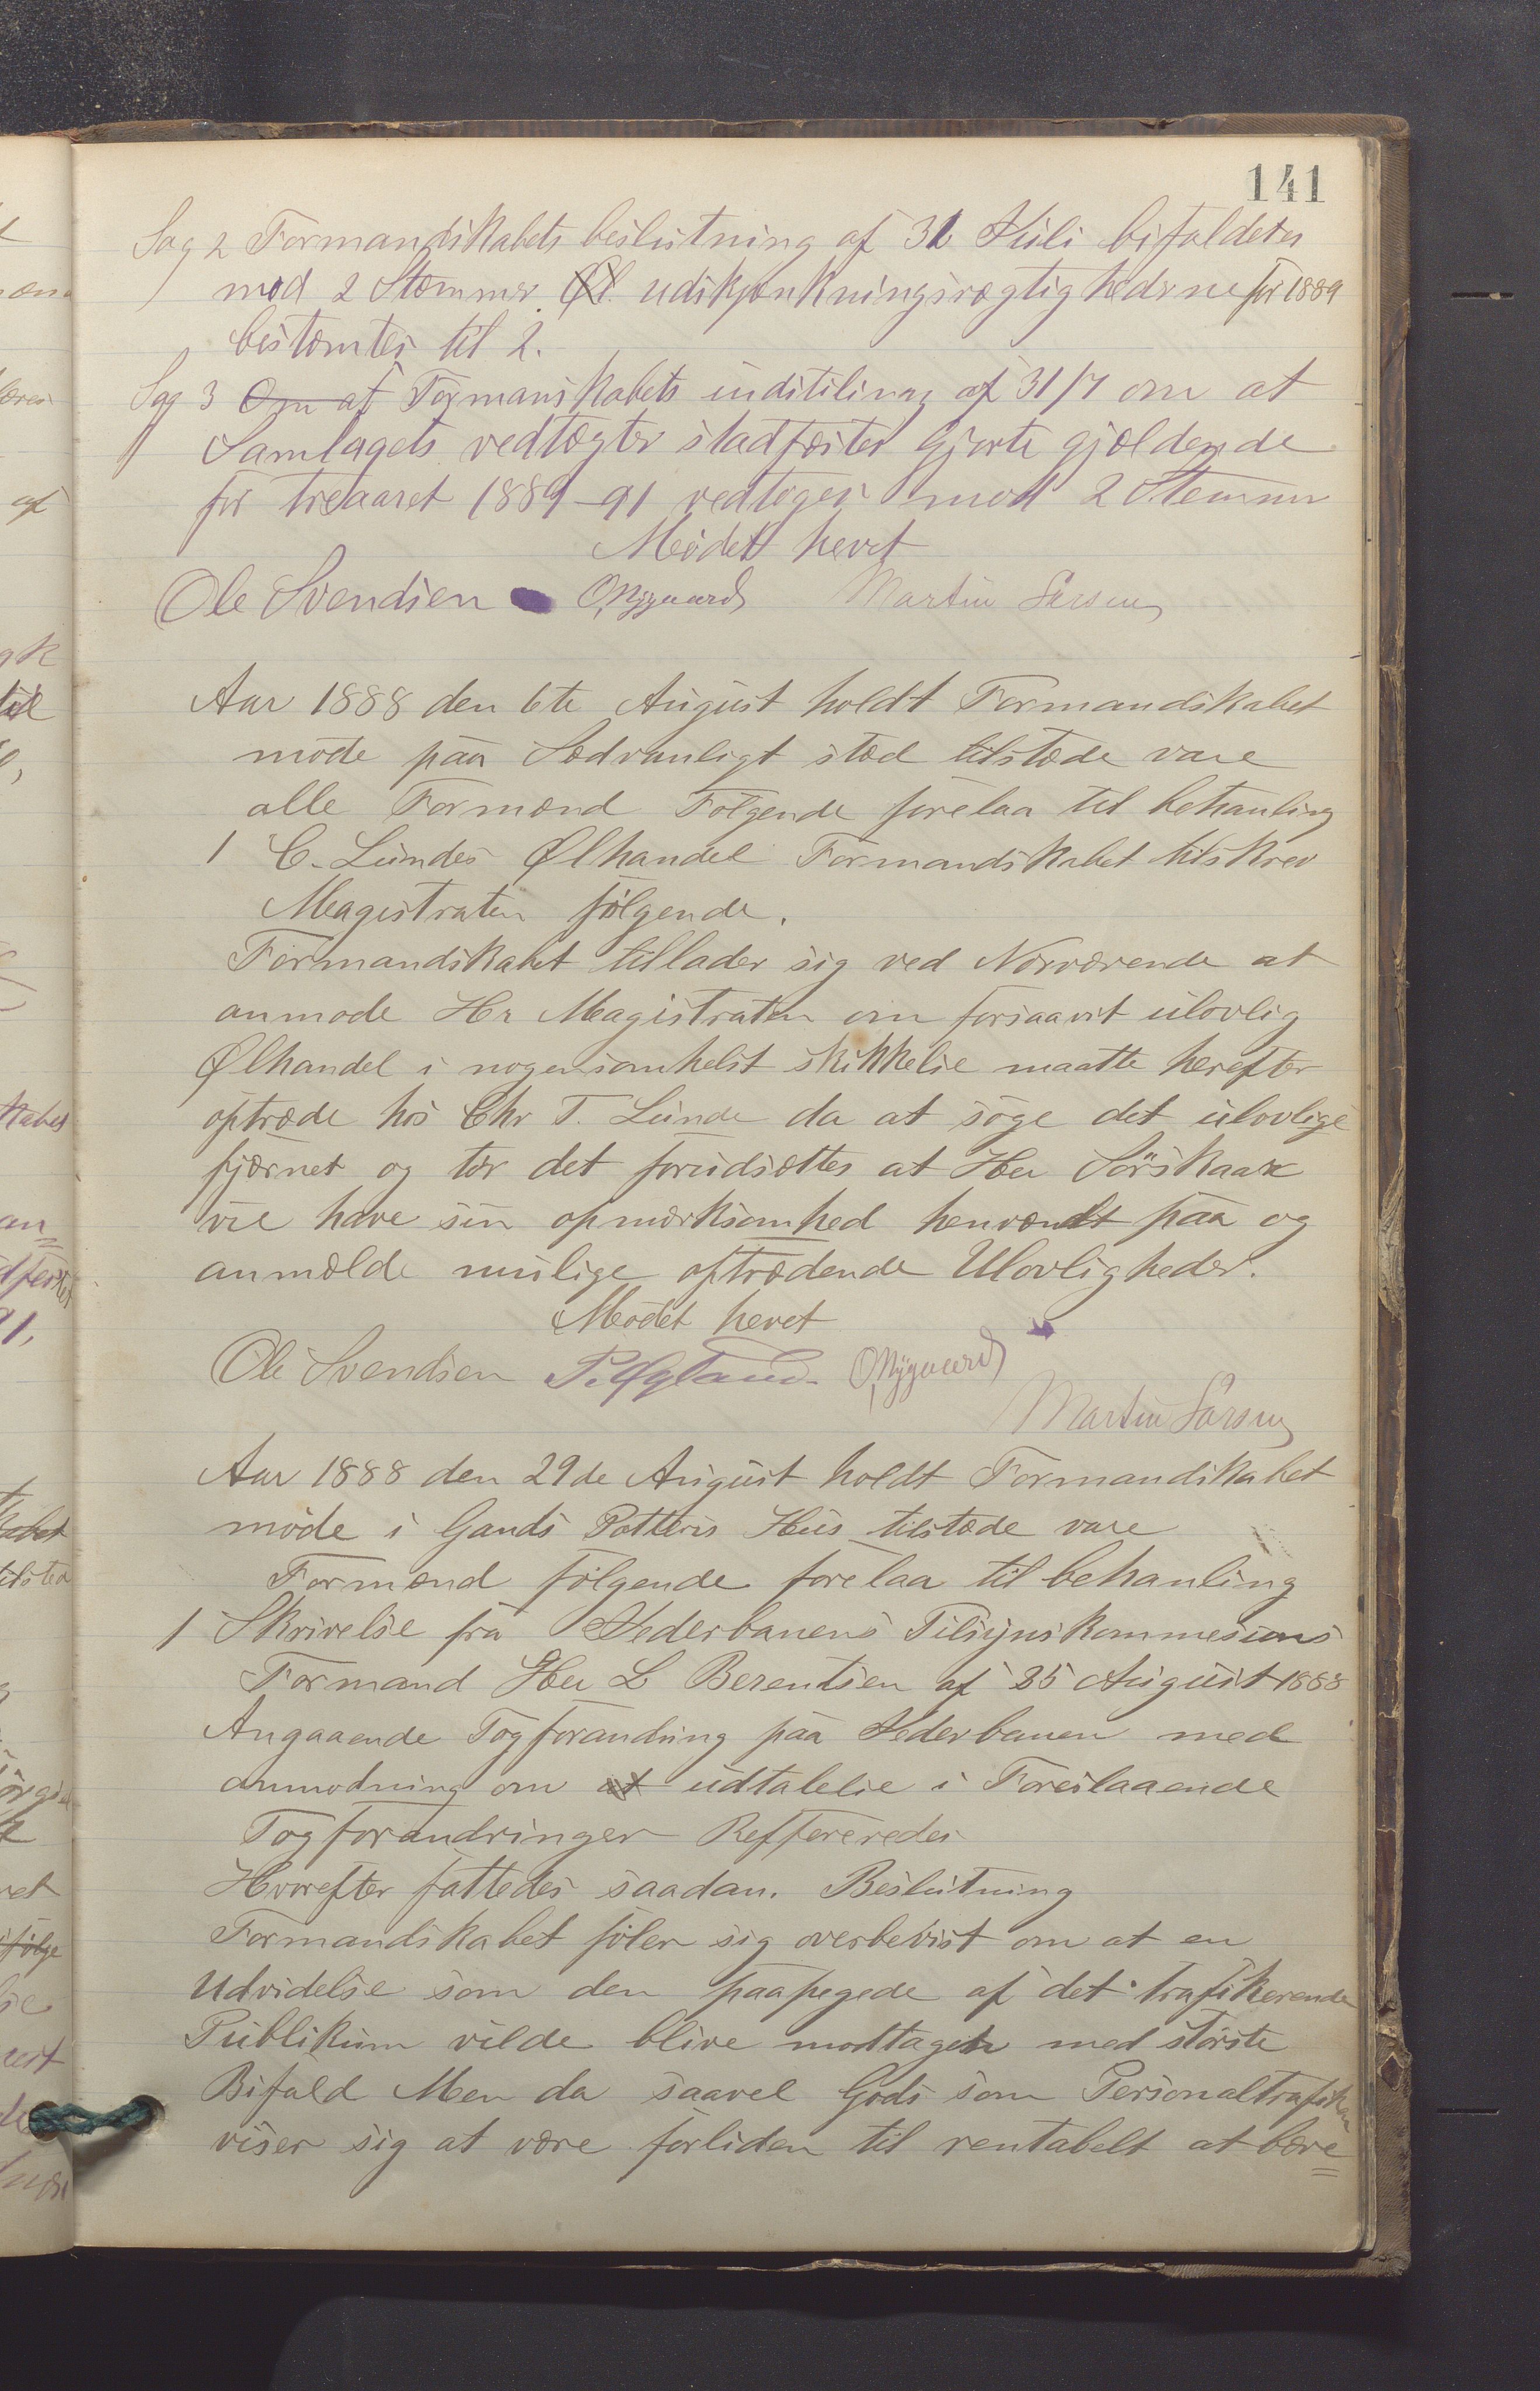 141
Sag 2 Formandskabets beslutning af 31 Juli bifaldetes
mod 2 Stemmer. Øl. udskjænkningsrægtighederne for 1889
bestemtes til 2.
Sag 3 Om at Formanskabets indstilinng af 31/7 om at
Samlagets vedtægter stadfæstet gjorte gjældende
for treaaret 1889-91 vedtoges mod 2 Stemmer
Mödet hevet
Ole Svendsen O. Nygaard Martin Larsen
Aar 1888 den 6te August holdt Formandskabet
möde paa Sædvanligt stæd tilstæde vare
alle Formænd Fölgende forelaa til behanling
1 C. Lundes Ølhandel Formandskabet tilskrev
Magistraten fölgende.
Formandskabet tillader sig ved Nærværende at
anmode Hr Magistraten om forsaavit ulovlig
Ølhandel i nogensomhelst skikkelse maatte herefter
optræde hos Chr T. Lunde da at söge det ulovlige
fjærnet og tör det forudsættes at Her Sörskaar
vil have sin opmærksomhed henvændt paa og
anmælde mulige optrædende Ulovligheder.
Mödet hevet
Ole Svendsen P. Øgland. O. Nygaard
Martin Larsen
Aar 1888 den 29de August holdt Formandskabet
möde i Gands Potteris Hus tilstæde vare
Formænd fölgende forelaa til behanling
1 Skrivelse fra Jederbanens Tilsynskommesions
Formand Her L Berentsen af 25 August 1888
Angaaende Togforandring paa Jederbanen med
anmodning om at udtalelse i Foreslaaende
Togforandringer Reffereredes
Hvorefter fattedes saadan. Beslutning
Formandskabet föler sig overbevist om at en
Udvidelse som den paapegede af det trafikerende
Publikum vilde blive modtagen med störste
Bifald Men da saavel Gods som Personaltrafiken
viser sig at være forliden til rentabelt at bære